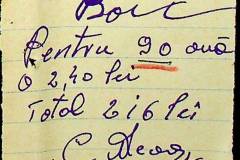 Bon
Pentru 90 ouă
a 2,40 lei
Total 216 lei